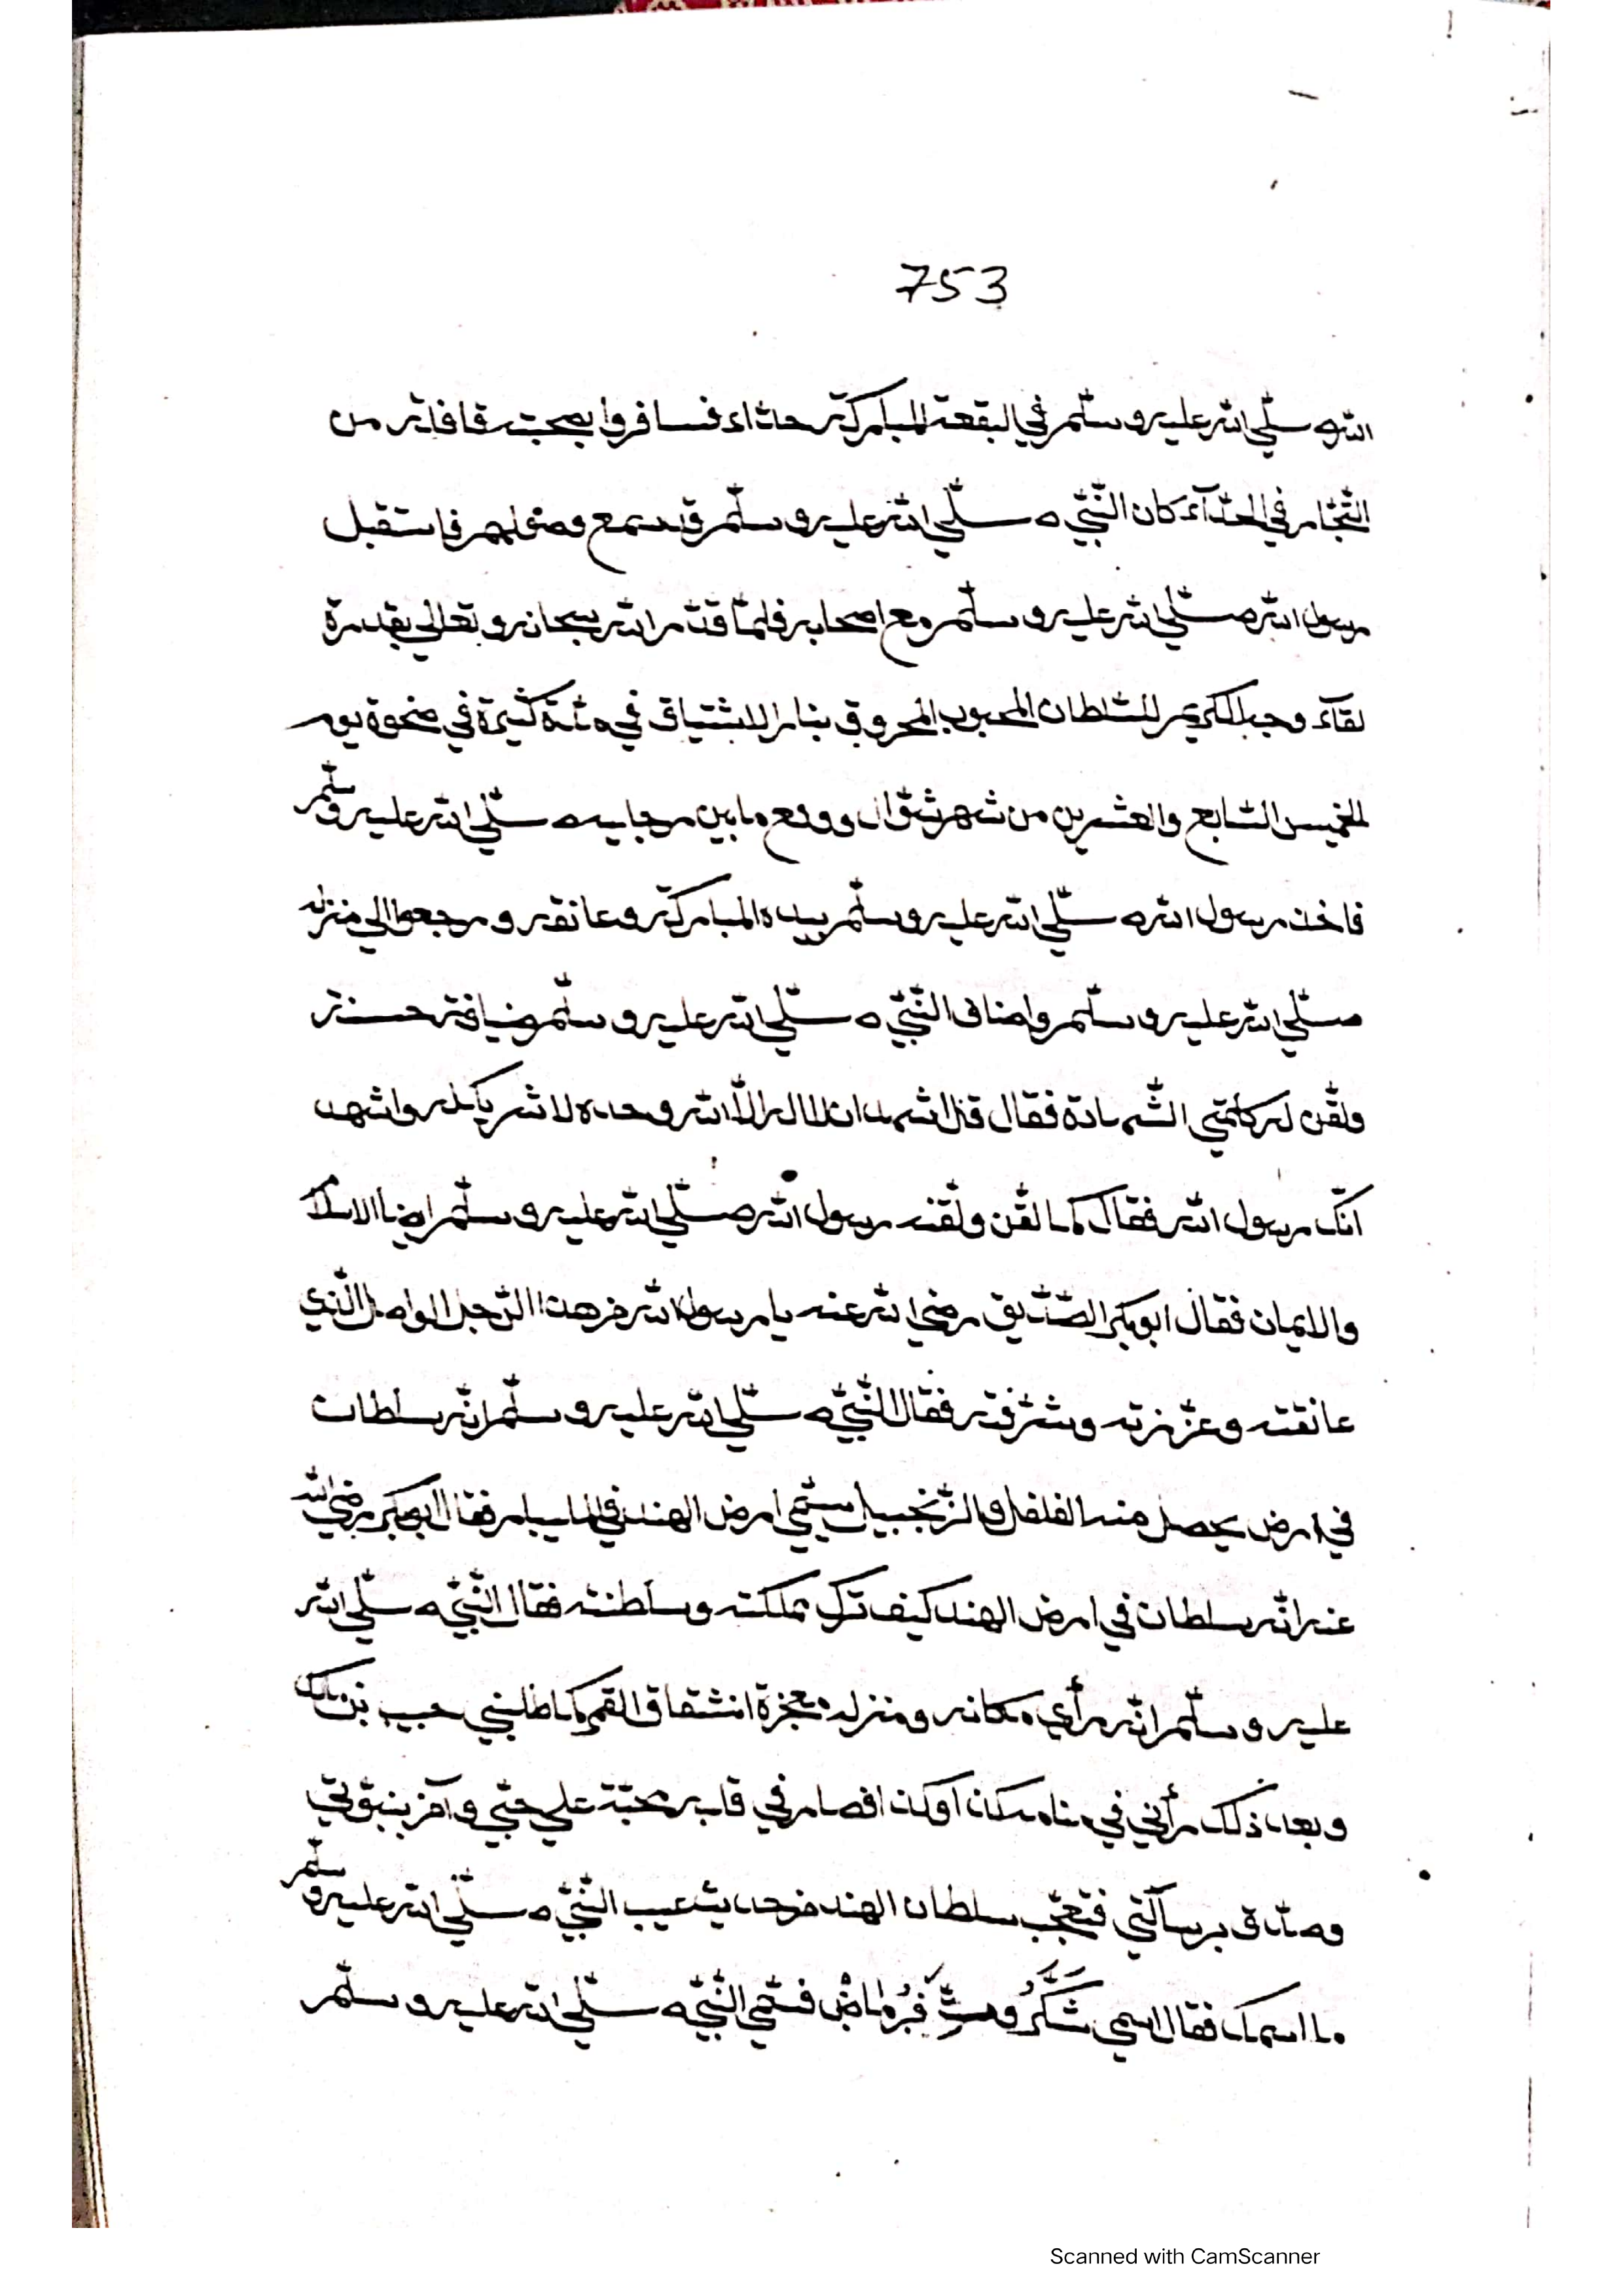 753
الله صلّي الله عليه وسلّم في البقعة المباركة حاثاء فسافروا بصحبت قافلة من
التّجّار في الحدّآء كان النّبيّ صلّي الله عليه وسلّم قد سمع وصولهم فاستقبل
رسول الله صلّي الله عليه وسلّم مع اصحابه فلمّا قدّر الله سبحانه وتعالي بقدرة
لقآء وجه الكريم للسّلطان المحبوب المحروق بنار الاشتياق في مدّة كثيرة في ضحوة يوم
الخميس السّابع والعشرين من شهر شوّال ووضع ما بين رجليه صلّي الله عليه وسلّم
فاخذ رسول الله صلّي الله عليه وسلّم بيده المباركة وعانقه ورجعوا الي منزله
صلّي الله عليه وسلّم واضاف النّبيّ صلّي الله عليه وسلّم ضيافة حسنة
ولقّن له كلمتي الشّهادة فقال قل اشهد ان لا اله الّا الله وحده لا شريك له واشهد
انّك رسول الله فقال كما لقّن ولقّنه رسول الله صلّي الله عليه وسلّم ايضا الاسلام
والايمان فقال ابو بكر الصّدّيق رضي الله عنه يا رسول الله من هذا الرّجل الواصل الّذي
عانقته وعزّزته وشرّفته فقال النّبيّ صلّي الله عليه وسلّم انّه سلطان
في ارض يحصل منه الفلفل والزّنجبيل يسمّي ارض الهند في المليبار فقال ابو بكر رضي الله
عنه انّه سلطان في ارض الهند كيف ترك مملكته وسلطنته فقال النّبيّ صلّي الله
عليه وسلّم انّه رأي مكانه ومنزله معجزة انشقاق القمر كما طلبني حبيب بن مالك
وبعد ذلك رأني في منامه كان اوكن افصار في قلبه محبّة علي حبّي وآمن بنبوّتي
وصدّق برسالتي فتعجّب سلطان الهند من حديث غيب النّبيّ صلّي الله عليه وسلّم
ما اسمك فقال اسمي شَكَّرُوَتِّ فَرُماضْ فسمّي النّبيّ صلّي الله عليه وسلّم
Scanned with CamScanner